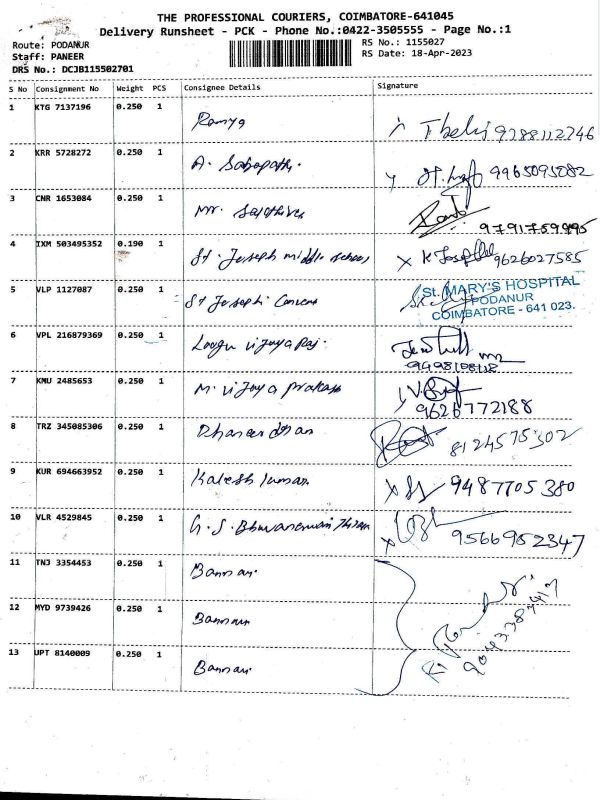 THE PROFESSIONAL COURIERS, COIMBATORE-641045
Delivery Runsheet - PCK - Phone No.:0422-3505555 - Page No.:1
Route: PODANUR
Staff: PANEER
DRS No.: DCJB115502701
RS No.: 1155027
RS Date: 18-Apr-2023
S No Consignment No Weight PCS Consignee Details Signature
1 KTG 7137196 0.250 1 Ramya 9788112746
2 KRR 5728272 0.250 1 A. Sabapathi. 9965095082
3 CNR 1653084 0.250 1 Mr. 9791759995
4 IXM 503495352 0.190 1 St. Joseph middle school X K Josephine 9626027585
5 VLP 1127087 0.250 1 St Joseph Convent
St. MARY'S HOSPITAL
PODANUR
COIMBATORE - 641 023.
6 VPL 216879369 0.250 1 vijaya Raj. 9498108118
7 KMU 2485653 0.250 1 M. vijaya prakash 9626772188
8 TRZ 345085306 0.250 1 8124575302
9 KUR 694663952 0.250 1 9487705380
10 VLR 4529845 0.250 1 G. S. 9566952347
11 TNJ 3354453 0.250 1 Bannari
12 MYD 9739426 0.250 1 Bannari
13 UPT 8140009 0.250 1 Bannari